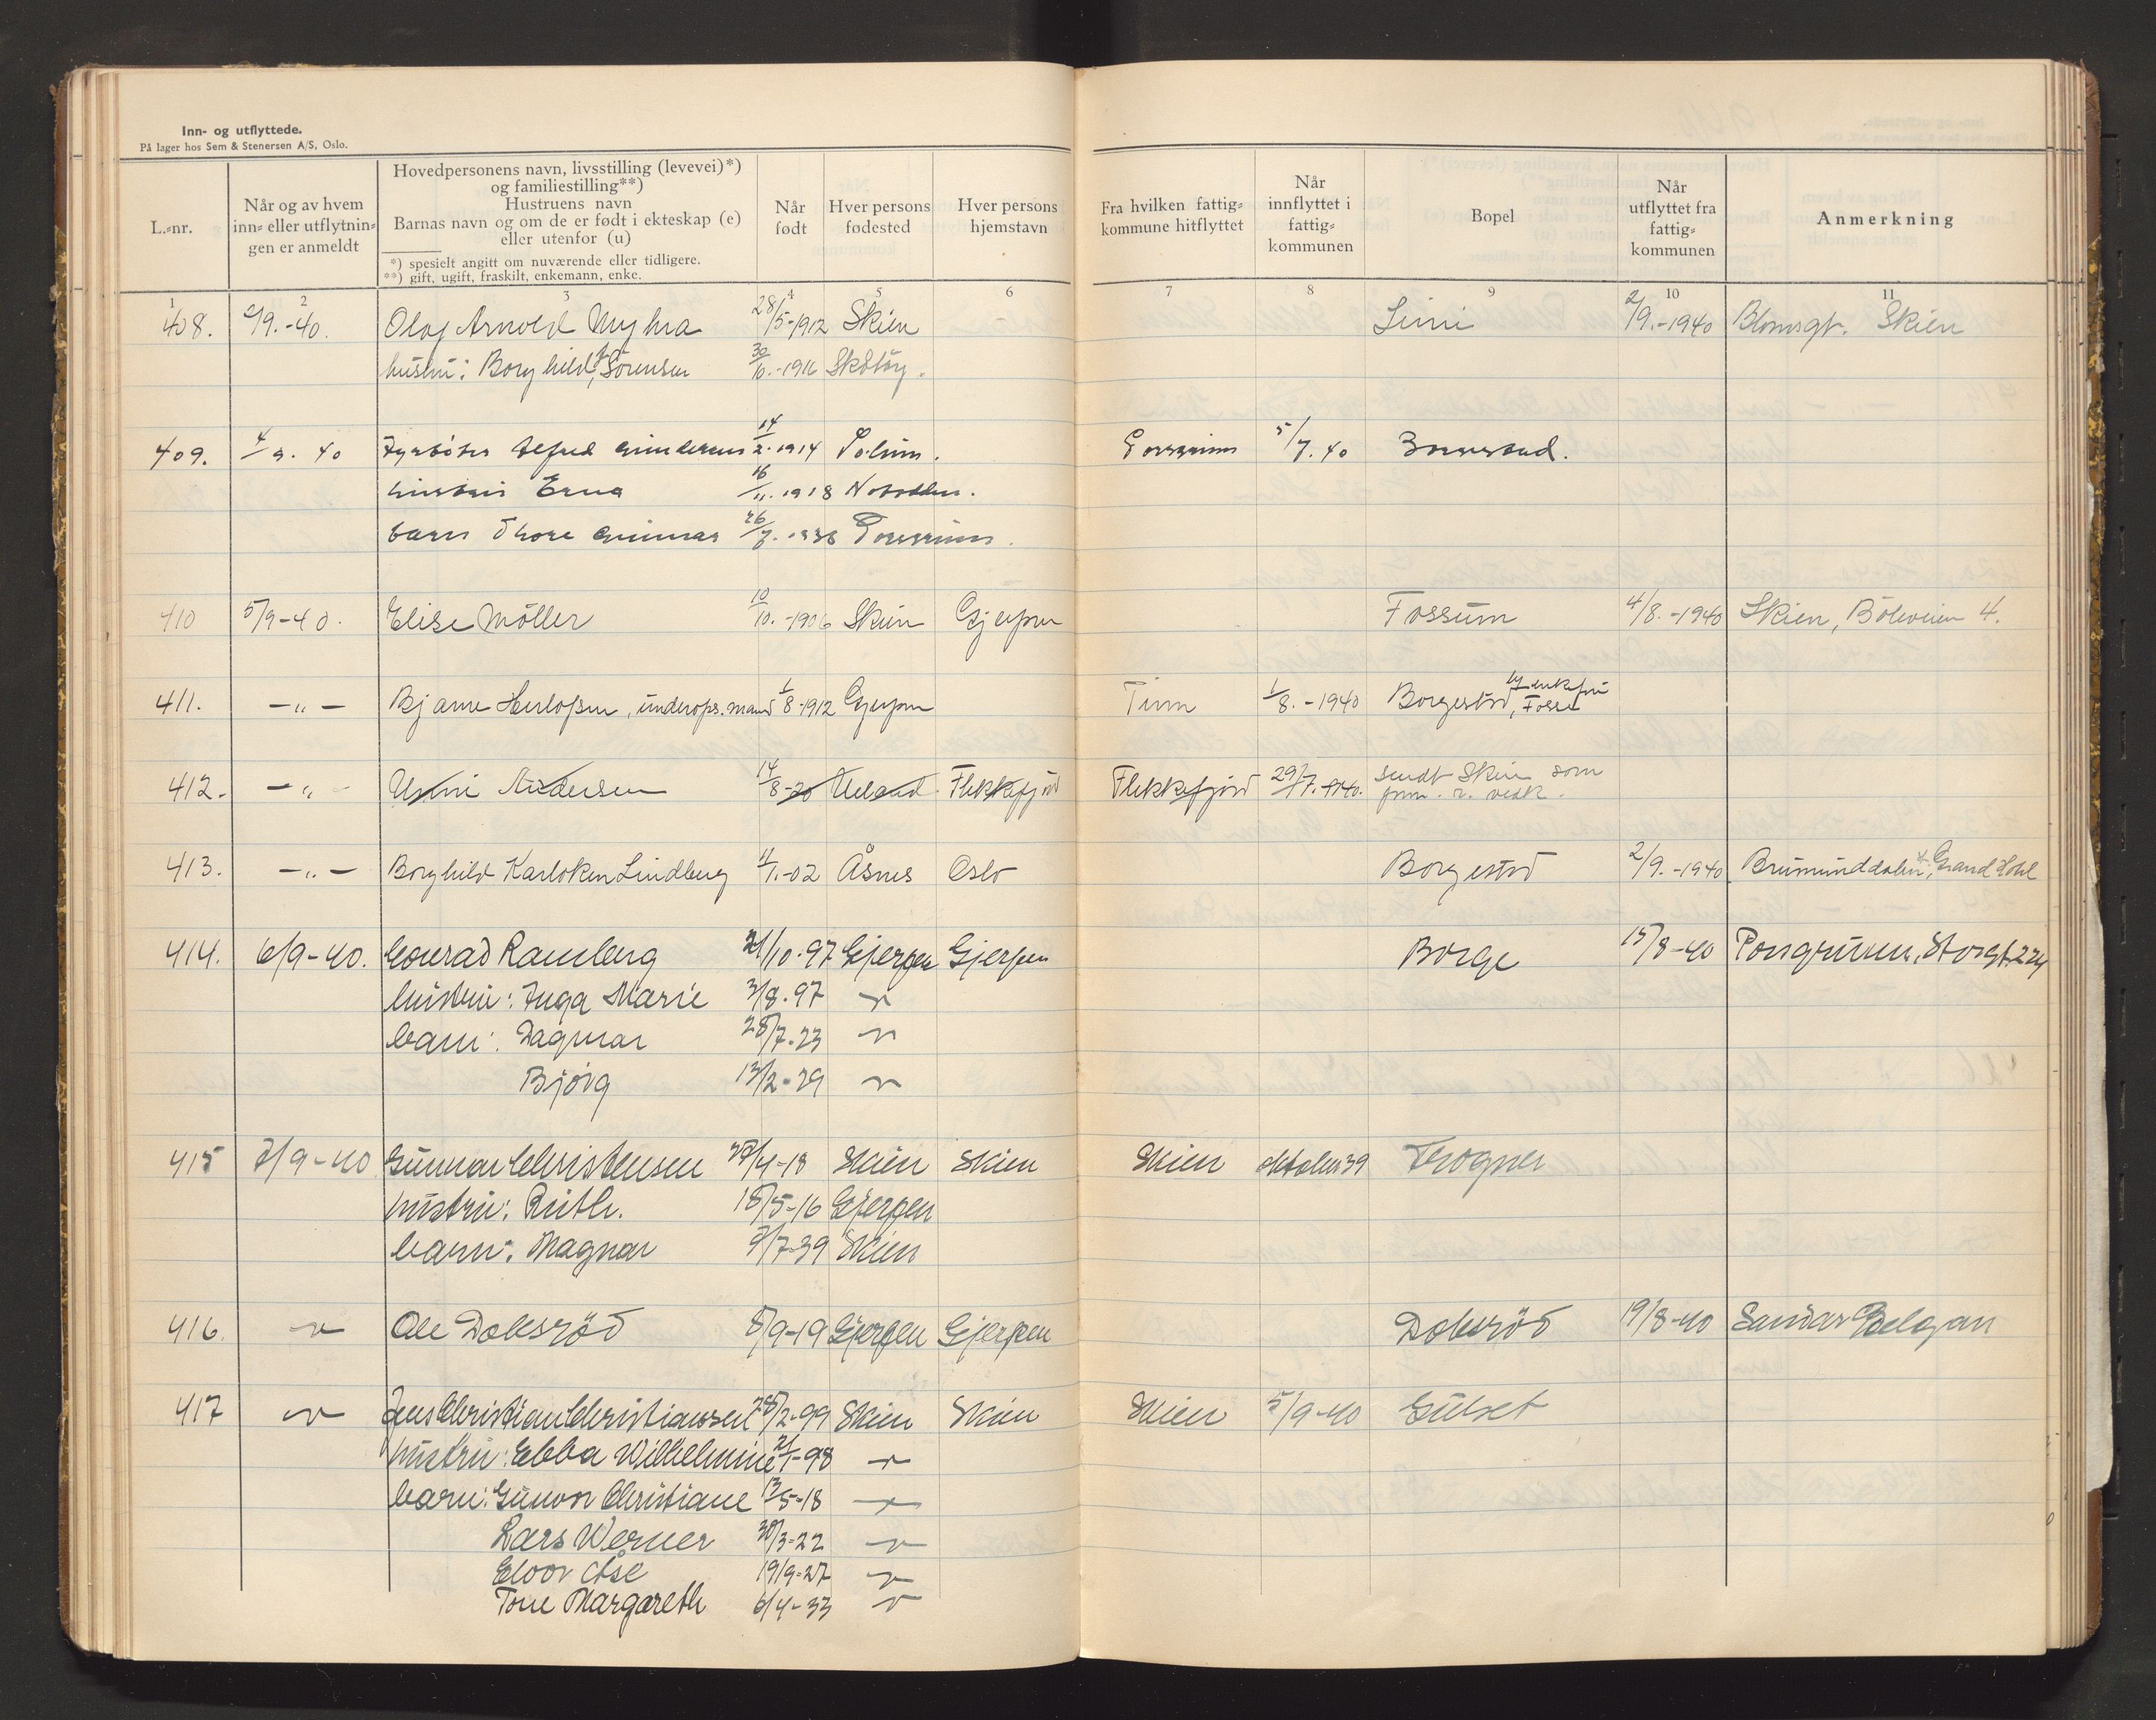 Inn- og utflyttede.
På lager hos Sem & Stenersen A/S, Oslo.
L.-nr.
Når og av hvem inn- eller utflytnin- gen er anmeldt
Hovedpersonens navn, livsstilling (levevei)*)
og familiestilling**)
Hustruens navn
Barnas navn og om de er født i ekteskap (e)
eller utenfor (u)
*) spesielt angitt om nuværende eller tidligere.
**) gift, ugift, fraskilt, enkemann, enke.
Når født
Hver persons fødested
Hver persons hjemstavn
Fra hvilken fattig- kommune hitflyttet
Når innflyttet i fattig- kommunen
Bopel
Når utflyttet fra fattig- kommunen
Anmerkning
1 2 3 4 5 6 7 8 9 10 11
408. 2/9.-40. Olaf Arnold Myhra 28/5-1912 Skien 2/9.-1940 Blomsgt. Skien
hustru: Borghild, f. Sörensen 30/10.-1916 Skotöy.
409. 4/9. 40 Fyrböter Alfred Gundersen 14/2. 1914 Solum. Porsgrunn 5/7. 40 Borgestad.
hustru Erna 16/11. 1918 Notodden.
barn Thore Gunnar 26/7. 1938 Porsgrunn.
410 5/9-40. Elise Möller 10/10.-1906 Skien Gjerpen Fossum 4/8.-1940 Skien, Böleveien 4.
411. -"- Bjarne Herlofsen, underops.mand 1/8-1912 Gjerpen Tinn 1/8.-1940 Borgestad,
412. -"- Unni Andersen 14/8-20 Flekkefjord Flekkefjord 29/7.-1940. sendt Skien som
413. -"- Borghild Karloken Lindberg 4/1.-02 Åsnes Oslo Borgestad 2/9.-1940 Brumunddalen, Grand Hotel
414. 6/9-40. Conrad Ramberg 21/10-97 Gjerpen Gjerpen Borge 15/8-40 Porsgrunn, Storgt.
hustru: Inga Marie 3/8.97 -"-
barn: Dagmar 28/7-23 -"-
Björg 13/2-29 -"-
415 7/9-40 Gunnar Christensen 27/4-18 Skien Skien Skien oktober 39 Frogner
hustru: Ruth. 18/5-16 Gjerpen
barn: Magnar 9/7-39 Skien
416. -"- Ole Doksröd 8/9-19 Gjerpen Gjerpen Doksröd 19/8-40 Sandar
417 -"- Jens Christian Christiansen 28/2-99 Skien Skien Skien 5/9-40 Gulset
hustru: Ebba Wilhelmine 21/1-98 -"-
barn: Gunvor Christiane 13/5-18 -"-
Lars Werner 30/3-22 -"-
Elvor Åse 19/9-27 -"-
Tone Margareth 6/4-33 -"-